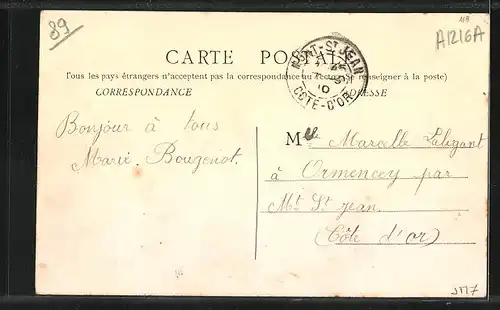 89
A1216A
CARTE POSTALE
MONT-ST-JEAN
COTE-D'OR
Tous les pays étrangers n'acceptent pas la correspondance au recto (se renseigner à la poste)
CORRESPONDANCE
ADRESSE
Bonjour à tous
Marie Bougenot
Mlle Marcelle
à Ormencey par
Mt St jean
(Côte d'or)